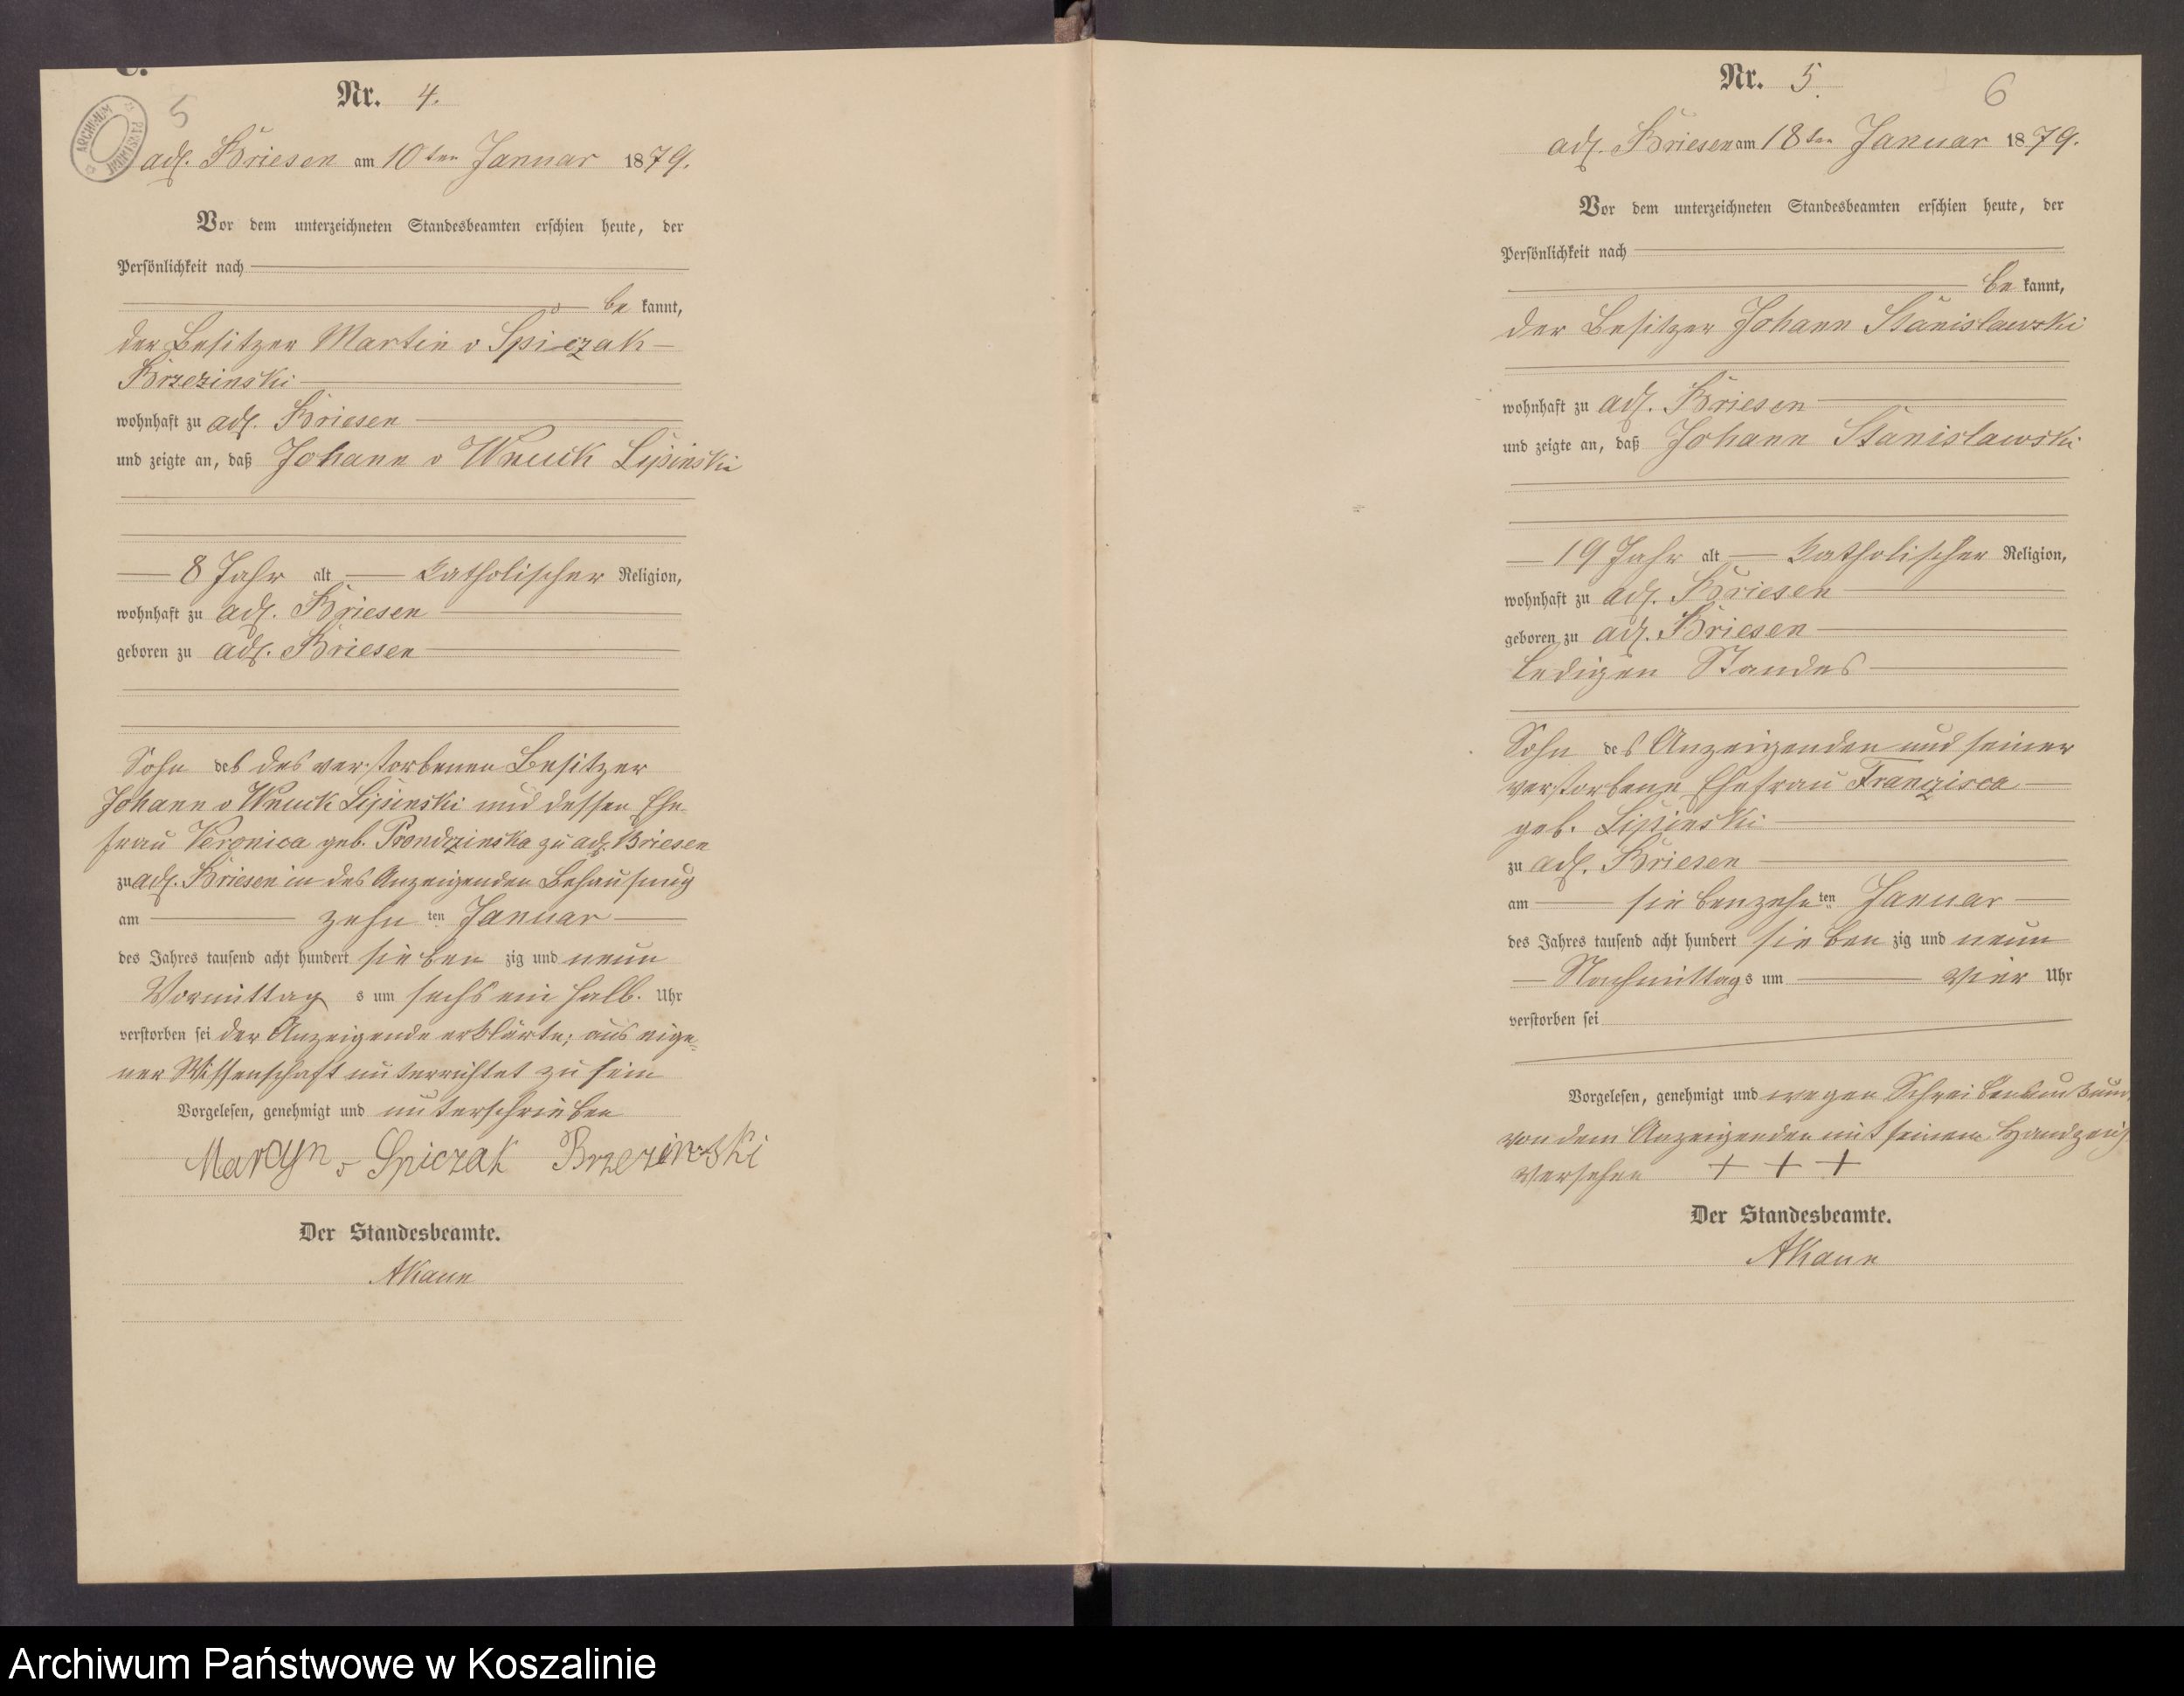 C.
Nr. 4.
5
ARCHIWUM PAŃSTWOWE
adl. Briesen am 10ten Januar 1879.
Vor dem unterzeichneten Standesbeamten erschien heute, der
Persönlichkeit nach
be kannt,
der Besitzer Martin v Spiczak
Brzezinski
wohnhaft zu adl. Briesen
und zeigte an, daß Johann v Wnuck Lipinski
8 Jahr alt katholischer Religion,
wohnhaft zu adl. Briesen
geboren zu adl. Briesen
Sohn des des verstorbenen Besitzer
Johann v Wnuck Lipinski und dessen Ehe
frau Veronica geb. Prondzinska zu adl. Briesen
zu adl. Briesen in des Anzeigenden Behausung
am zehn ten Januar
des Jahres tausend acht hundert sieben zig und neun
Vormittag s um sechs ein halb. Uhr
verstorben sei der Anzeigende erklärte; aus eige=
ner Wissenschaft unterrichtet zu sein
Vorgelesen, genehmigt und unterschrieben
Marcyn v Spiczak Brzezinski
Der Standesbeamte.
AKaun
Nr. 5.
6
adl. Briesen am 18ten Januar 1879.
Vor dem unterzeichneten Standesbeamten erschien heute, der
Persönlichkeit nach
be kannt,
der Besitzer Johann Stanislawski
wohnhaft zu adl. Briesen
und zeigte an, daß Johann Stanislawski
19 Jahr alt katholischer Religion,
wohnhaft zu adl. Briesen
geboren zu adl. Briesen
ledigen Standes
Sohn des Anzeigenden und seiner
verstorbene Ehefrau Franzisca
geb. Lipinski
zu adl. Briesen
am siebenzehn ten Januar
des Jahres tausend acht hundert sieben zig und neun
Nachmittag s um vier Uhr
verstorben sei
Vorgelesen, genehmigt und wegen Schreibensunkund
von dem Anzeigenden mit seinem Handzeich
versehen + + +
Der Standesbeamte.
AKaun
Archiwum Państwowe w Koszalinie